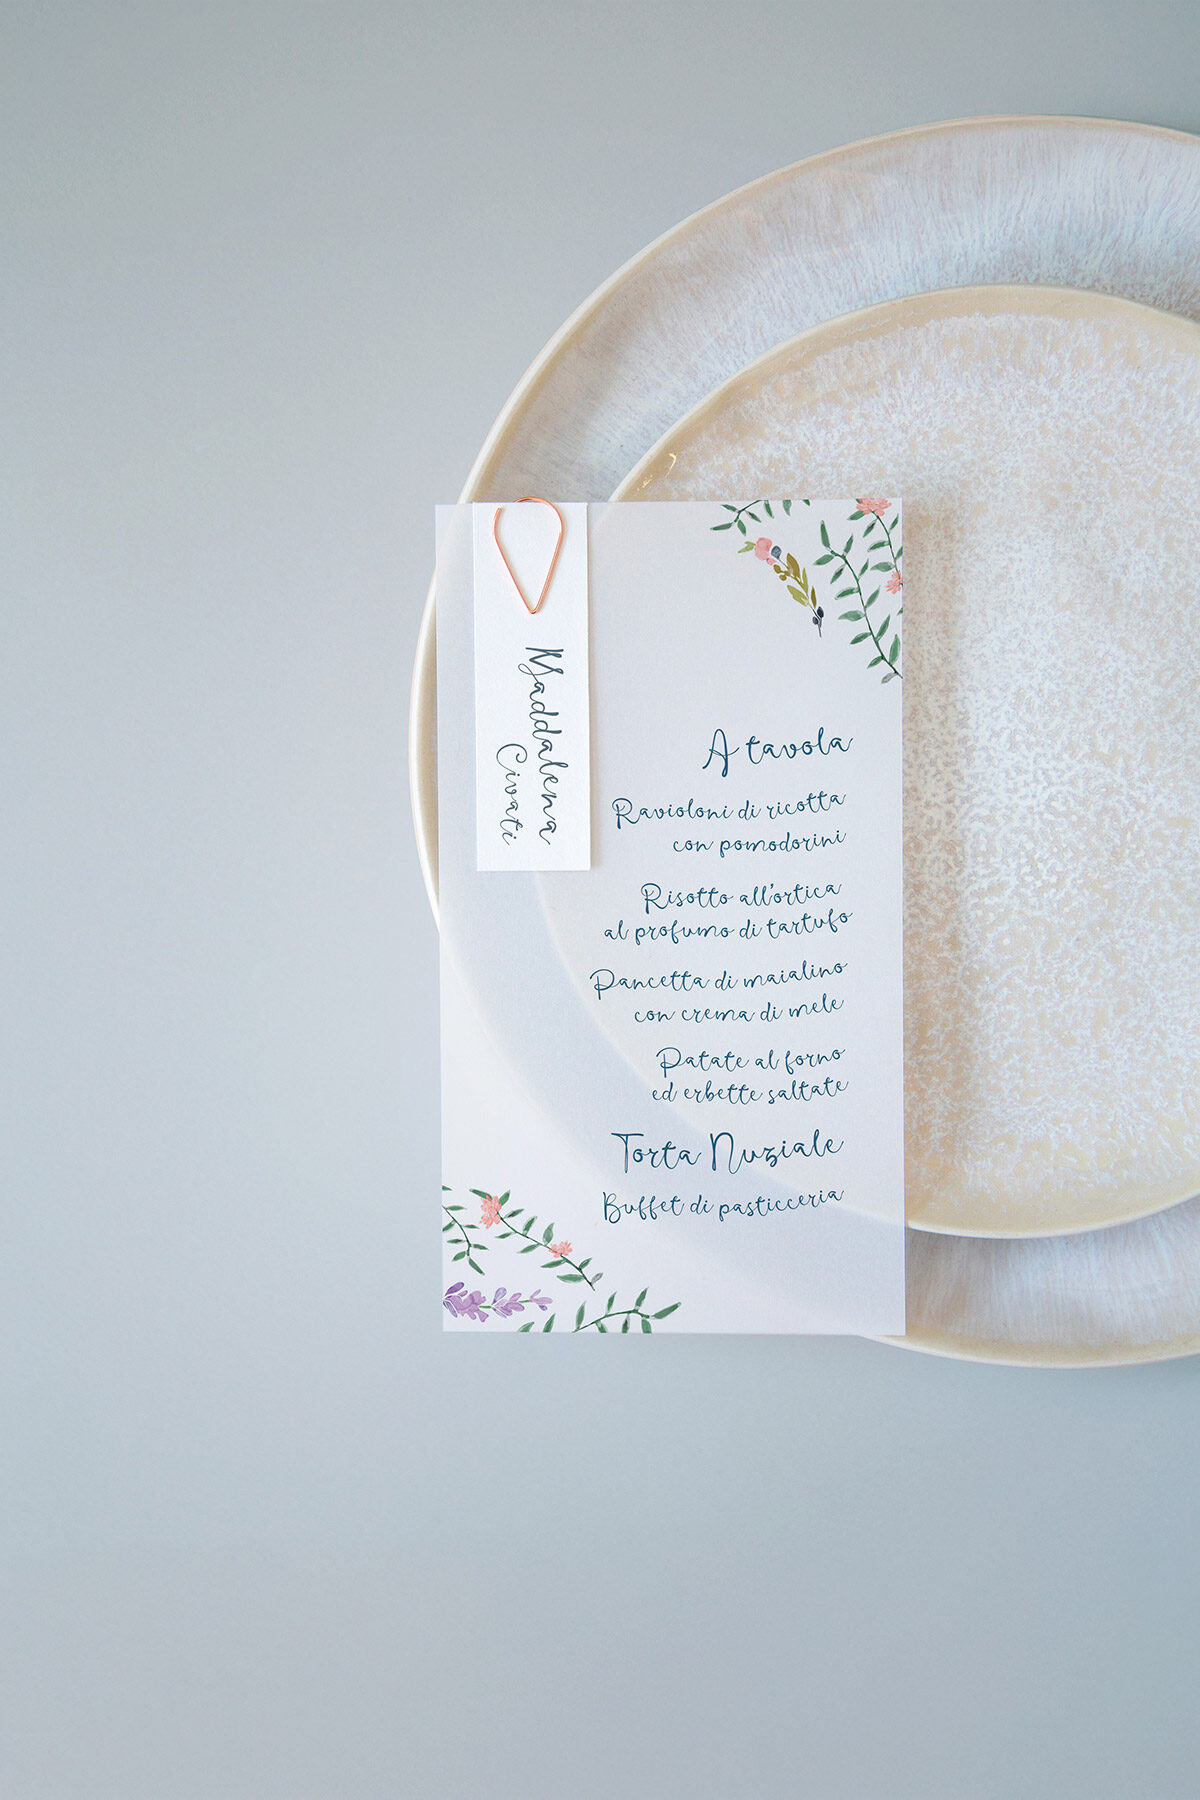 Maddalena
Civati
A tavola
Ravioloni di ricotta
con pomodorini
Risotto all'ortica
al profumo di tartufo
Pancetta di maialino
con crema di mele
Patate al forno
ed erbette saltate
Torta Nuziale
Buffet di pasticceria